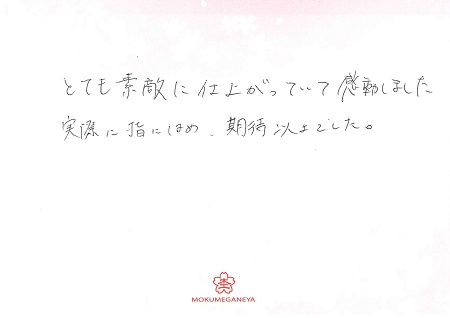 とても素敵に仕上がっていて感動しました
実際に指にはめ、期待以上でした。
MOKUMEGANEYA